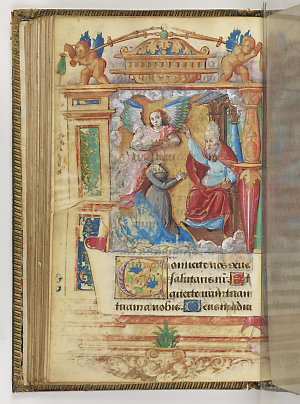 Conuerte nos deus
salutaris nr̄. Et
auerte iram
tuam a nobis. Deus in adiu